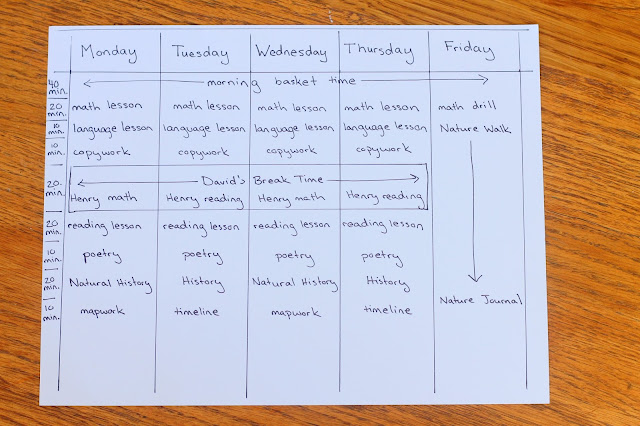 Monday Tuesday Wednesday Thursday Friday
40 min. morning basket time
20 min. math lesson math lesson math lesson math lesson math drill
10 min. language lesson language lesson language lesson language lesson Nature Walk
10 min. copywork copywork copywork copywork
David's Break Time
20. min. Henry math Henry reading Henry math Henry reading
20 min. reading lesson reading lesson reading lesson reading lesson
10 min. poetry poetry poetry poetry
20 min. Natural History History Natural History History
Nature Journal
10 min. mapwork timeline mapwork timeline